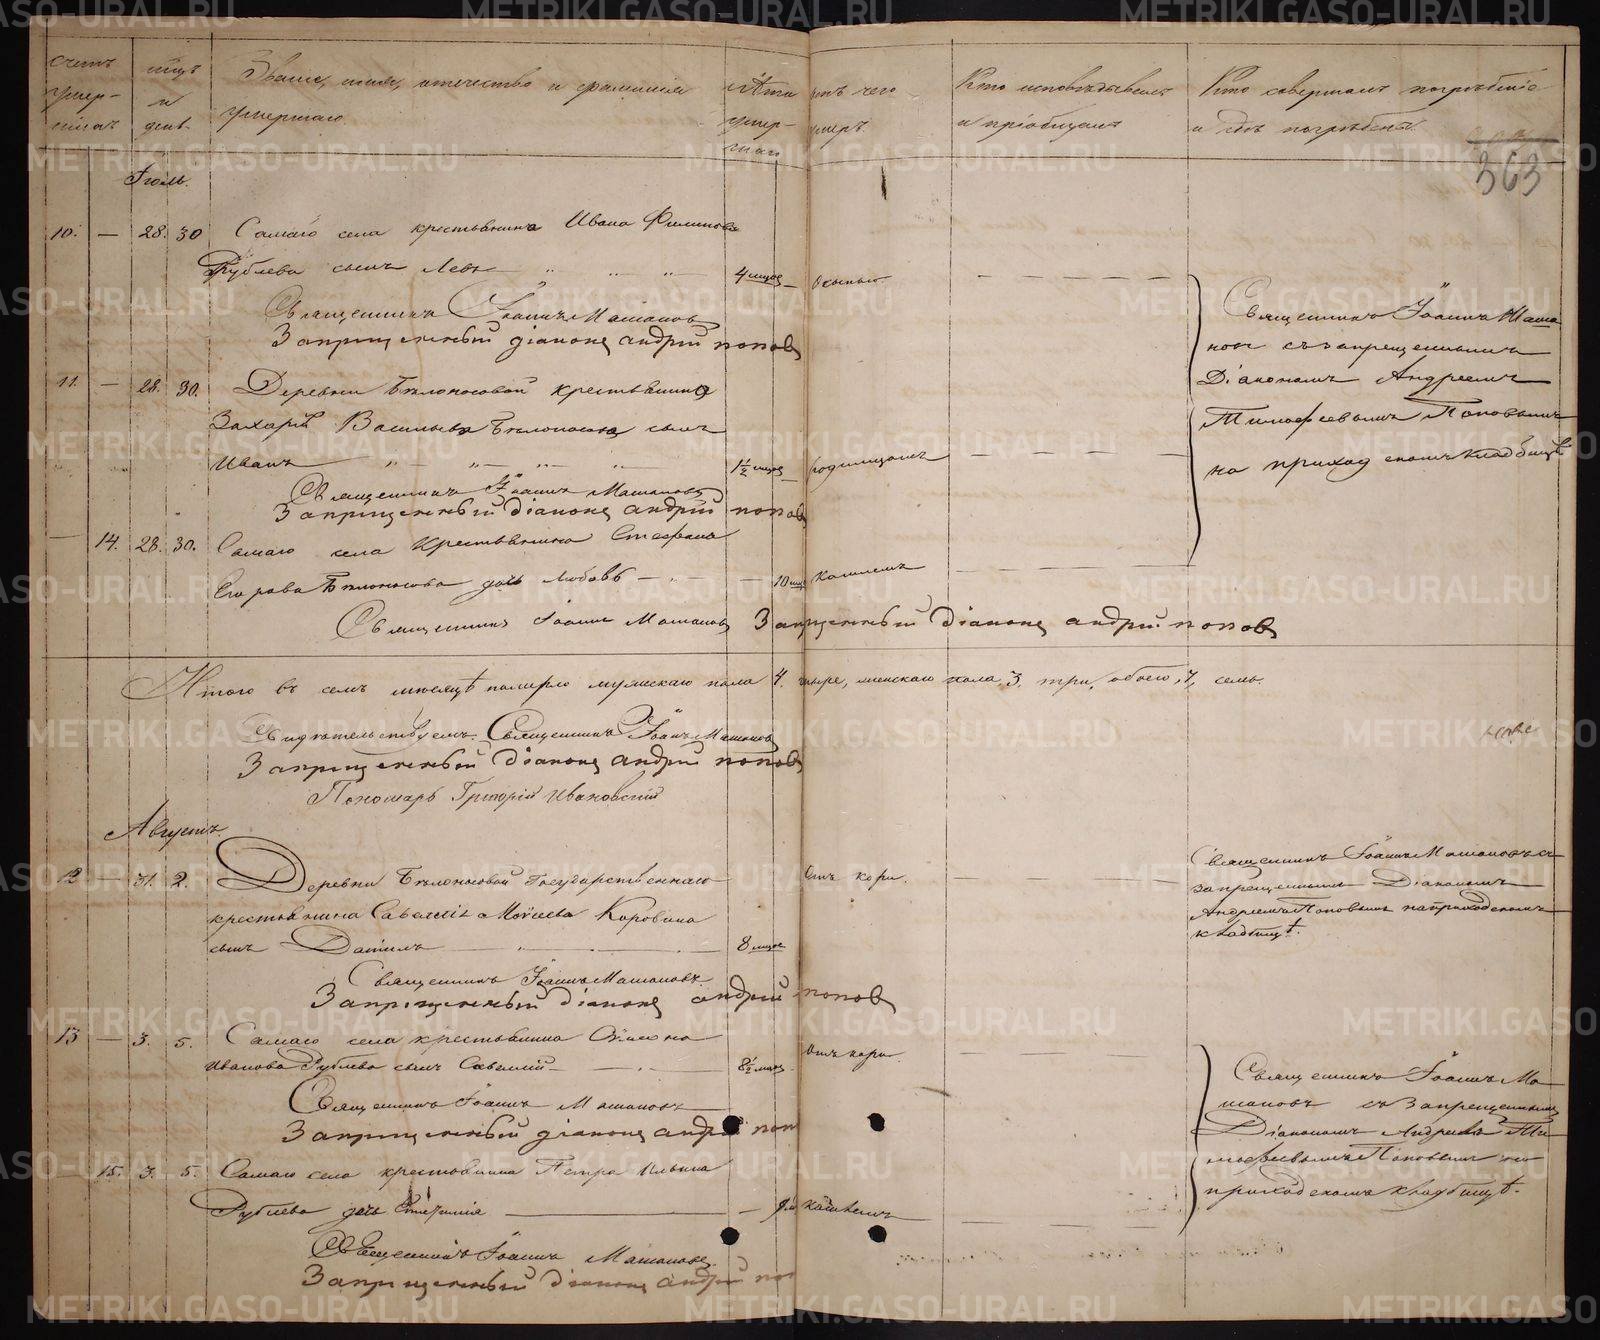 Счетъ умер-шихъ
мѣсяцъ и день
Званіе, имя, отечество и фамилія умершаго
Лѣта умер-шаго
отъ чего умеръ
Кто исповѣдывалъ и пріобщалъ
Кто совершалъ погребеніе и гдѣ погребены
363
Іюль.
10. — 28. 30 Самаго села крестьянина Ивана Филипова
Рублева сынъ Левъ 4 мѣсяц. Осыпью.
Священникъ Іоаннъ Машановъ
Запрещенный діаконъ андрей попов
Священникъ Іоаннъ Маша-
новъ съ запрещеннымъ
Діакономъ Андреемъ
Тимофеевымъ Поповымъ
на приходскомъ кладбищѣ
11. — 28. 30. Деревни Бѣлоносовой крестьянина
Захарія Васильева Бѣлоносова сынъ
Иванъ 1½ мѣсяц. родимцомъ
Священникъ Іоаннъ Машановъ
Запрещенный діаконъ андрей попов
— 14. 28. 30. Самаго села Крестьянина Стефана
Егорова Бѣлоносова дочь Любовь 10 мѣс. Кашлемъ
Священникъ Іоаннъ Машановъ Запрещенный діаконъ андрей попов
Итого въ семъ мѣсяцѣ померло мужескаго пола 4. четыре, женскаго пола 3. три, обоего 7, семь.
Свидѣтельствуемъ: Священникъ Іоаннъ Машановъ
Запрещенный діаконъ андрей попов
Пономарь Григорій Ивановскій
Августъ.
12 — 31. 2. Деревни Бѣлоносовой Государственнаго
крестьянина Савелія Моѵсеева Коровина
сынъ Даніилъ 8 мѣсяц Отъ кори.
Священникъ Іоаннъ Машановъ
Запрещенный діаконъ андрей попов
Священникъ Іоаннъ Машановъ съ
запрещеннымъ Діакономъ
Андреемъ Поповымъ на приходскомъ
кладбищѣ.
13 — 3. 5. Самаго села крестьянина Симеона
Иванова Рублева сынъ Савелій 8½ мѣсяц. Отъ кори.
Священникъ Іоаннъ Машановъ
Запрещенный діаконъ андрей поп
Священникъ Іоаннъ Ма-
шановъ съ Запрещеннымъ
Діакономъ Андреемъ Ти-
мофеевымъ Поповымъ на
приходскомъ кладбищѣ.
— 15. 3. 5. Самаго села крестьянина Петра Ильина
Рублева дочь кашлемъ
Священникъ Іоаннъ Машановъ.
Запрещенный діаконъ андрей поп
METRIKI.GASO-URAL.RU